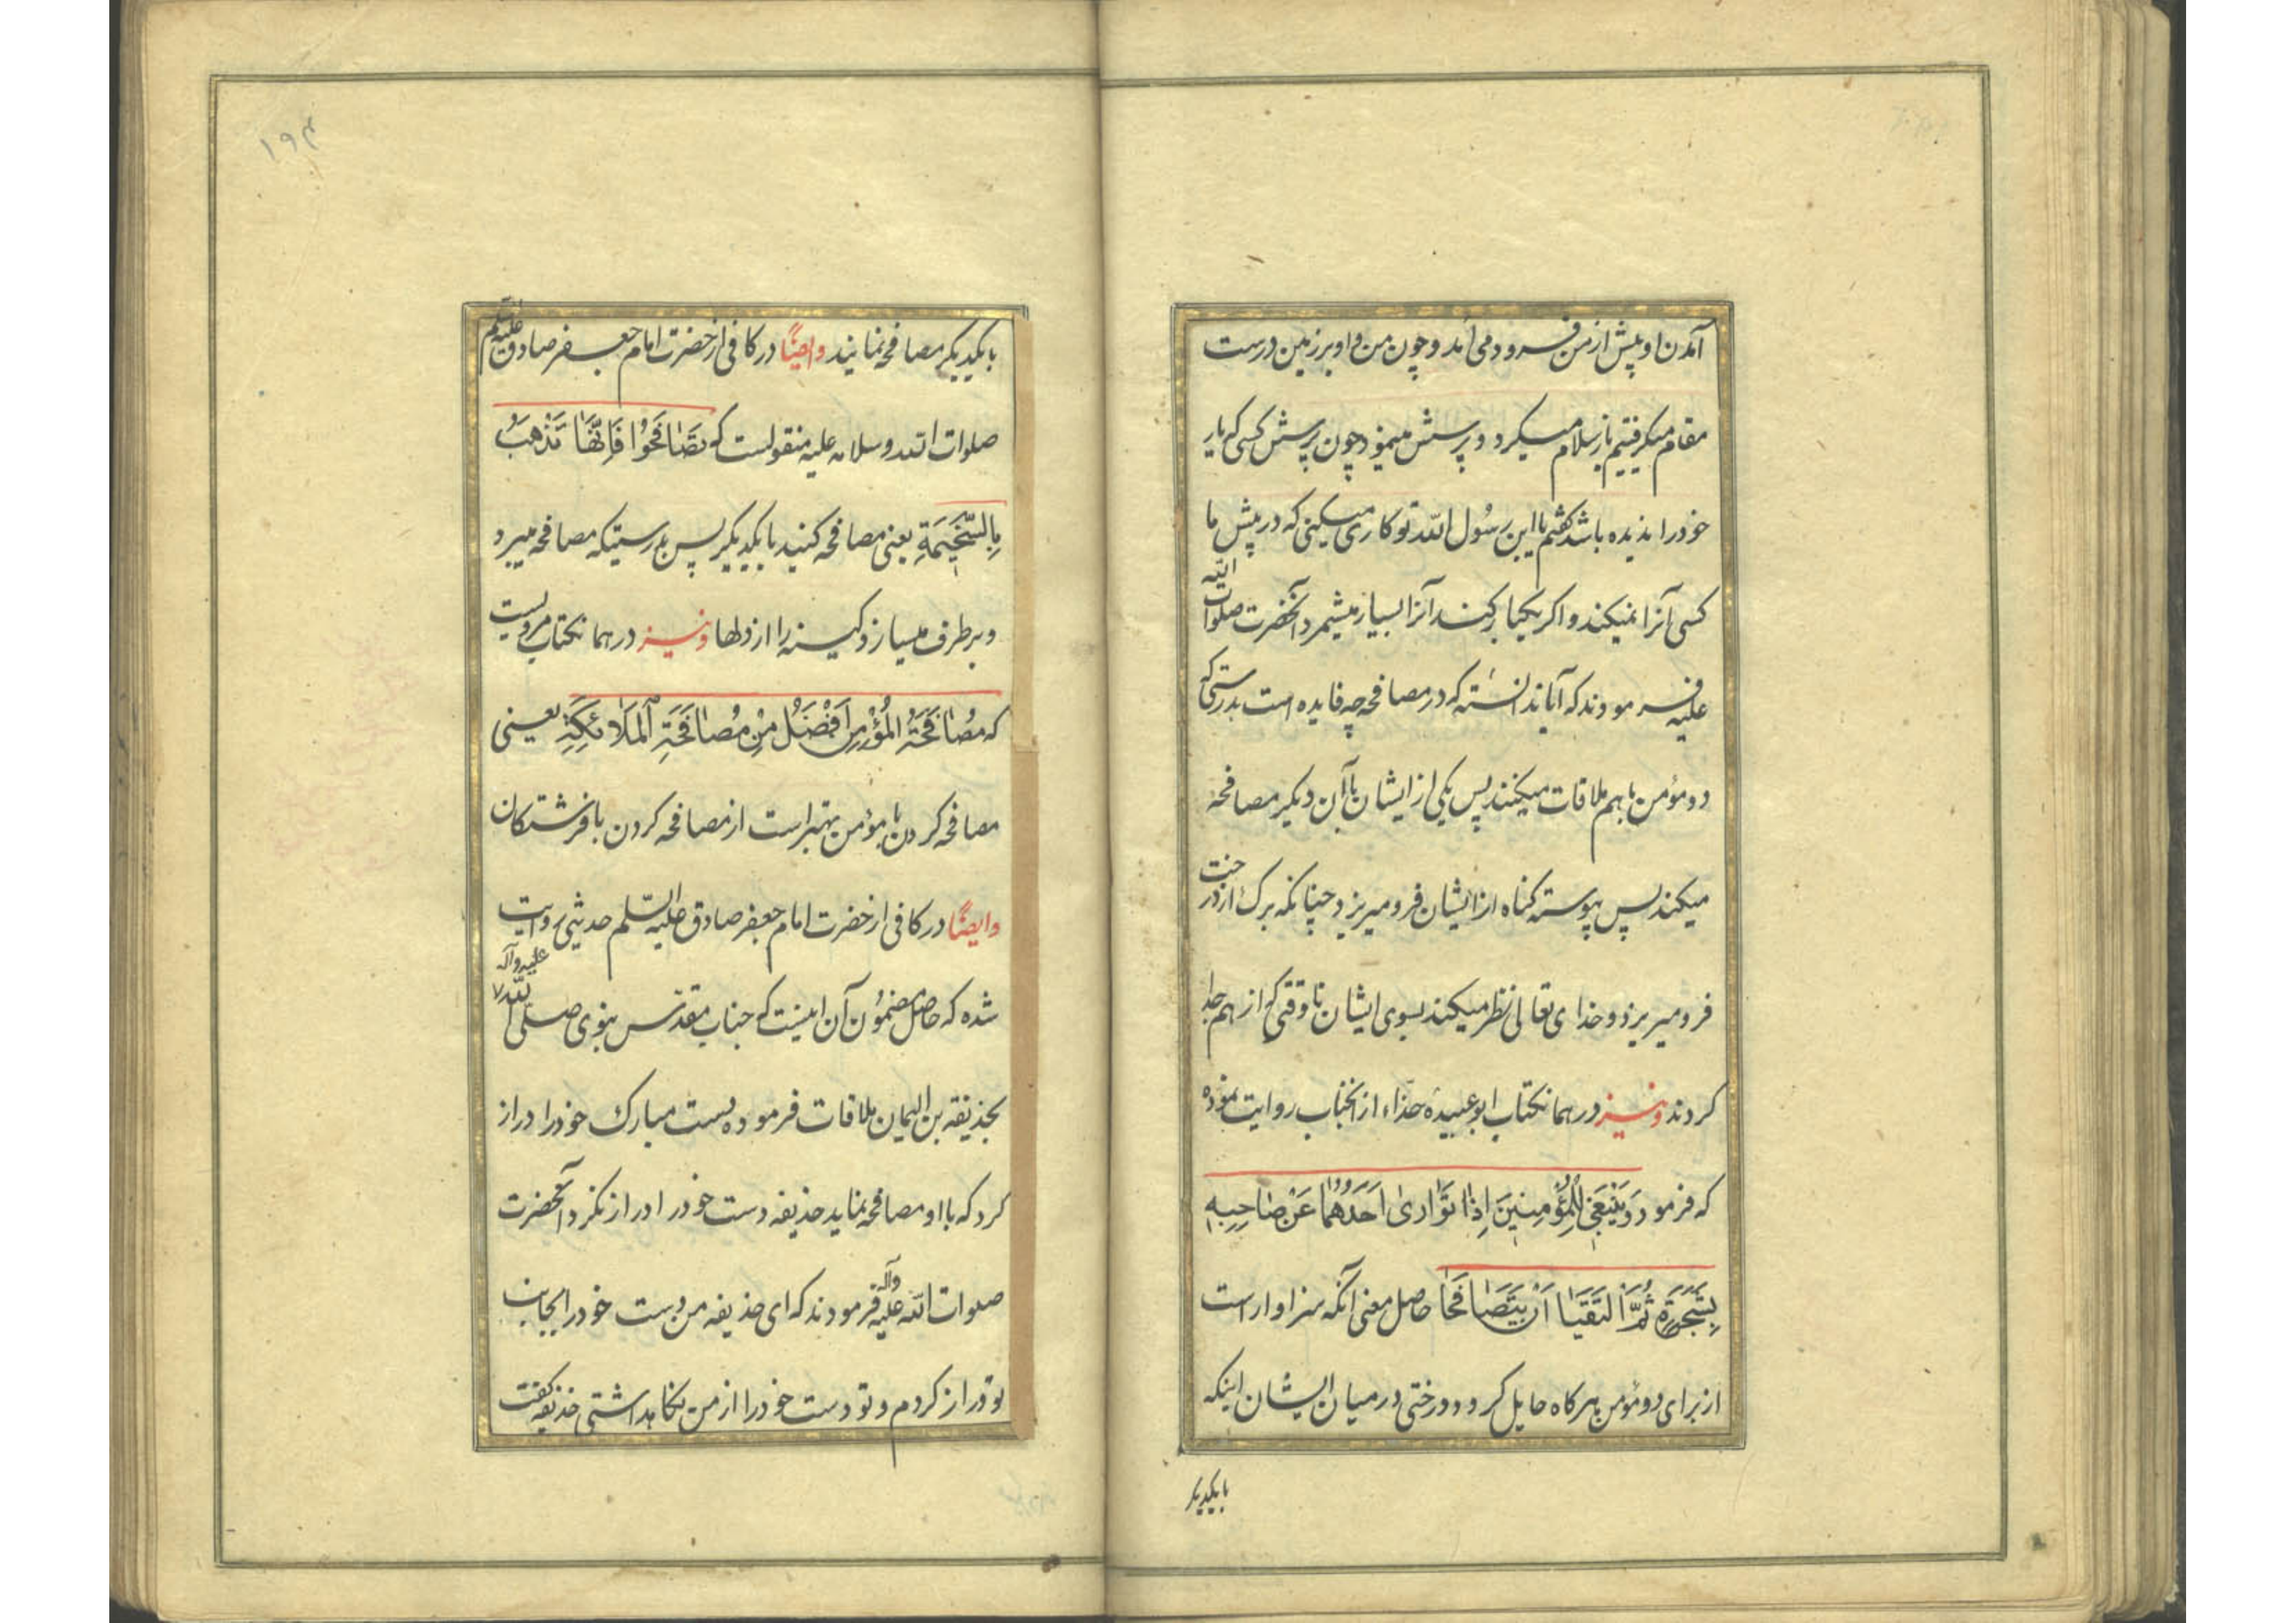 آمدن او پیش از من فرود می آمد و چون من و او بر زمین درست
مقام میکرفتیم باز سلام میکرد و پرسش مینمود چون پرسش کسی که یار
خود را ندیده باشد گفتم یا ابن رسول الله تو کاری میکنی که در پیش ما
کسی آنرا نمیکند و اکر یکبار کند آنرا بسیار میشمرد آنحضرت صلوات الله
علیه فرمودند که آیا ندانسته که در مصافحه چه فایده است بدرستی که
دو مؤمن با هم ملاقات میکنند پس یکی از ایشان با آن دیکر مصافحه
میکند پس پیوسته کناه از ایشان فرو میریزد چنانکه برک از درخت
فرو میریزد و خدای تعالی نظر میکند بسوی ایشان تا وقتی که از هم جدا
کردند و نیز در همانکتاب ابو عبیده حذاء از انجناب روایت نموده
که فرمود یَنْبَغی لِلْمُؤمِنَینَ اِذٰا تَوٰاریٰ اَحَدُهُمٰا عَنْ صٰاحِبِهِ
بِشَجَرَةٍ ثُمَّ الْتَقَیٰا اَنْ یَتَصٰافَحٰا حاصل معنی آنکه سزاوار است
از برای دو مؤمن هر کاه حایل کردد درختی در میان ایشان اینکه
با یکدیکر
۱۹۴
با یکدیکر مصافحه نمایند وایضًا در کافی از حضرت امام جعفر صادق علیه السلم
صلوات الله و سلامه علیه منقولست که تَصٰافَحُوا فَاِنَّهٰا تَذْهَبُ
بِالسَّخیمَةِ یعنی مصافحه کنید با یکدیکر پس بدرستیکه مصافحه میبرد
و بر طرف میسازد کینه را از دلها و نیز در همانکتاب مرویست
که مُصٰافَحَةُ الْمُؤْمِنِ اَفْضَلُ مِنْ مُصٰافَحَةِ الْمَلاٰئِکَةِ یعنی
مصافحه کردن با مؤمن بهتر است از مصافحه کردن با فرشتکان
وایضًا در کافی از حضرت امام جعفر صادق علیه السلم حدیثی روایت
شده که حاصل مضمون آن اینست که جناب مقدس نبوی صلی الله علیه وآله
بحذیفه بن الیمان ملاقات فرموده دست مبارک خود را دراز
کرد که با او مصافحه نماید حذیفه دست خود را دراز نکرد آنحضرت
صلوات الله علیه وآله فرمودند که ای حذیفه من دست خود را بجانب
تو دراز کردم و تو دست خود را از من نکاهداشتی حذیفه کفت